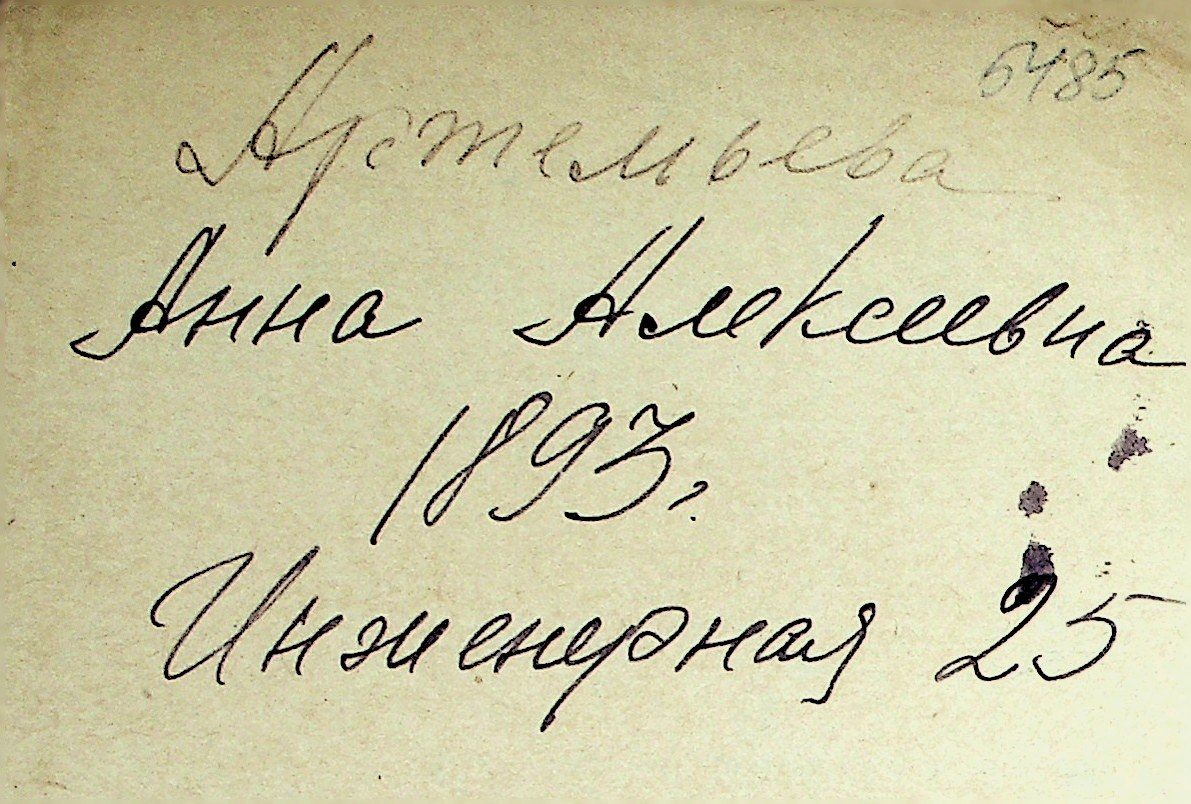 5485
Артемьева
Анна Алексеевна
1893 г.
Инженерная 25